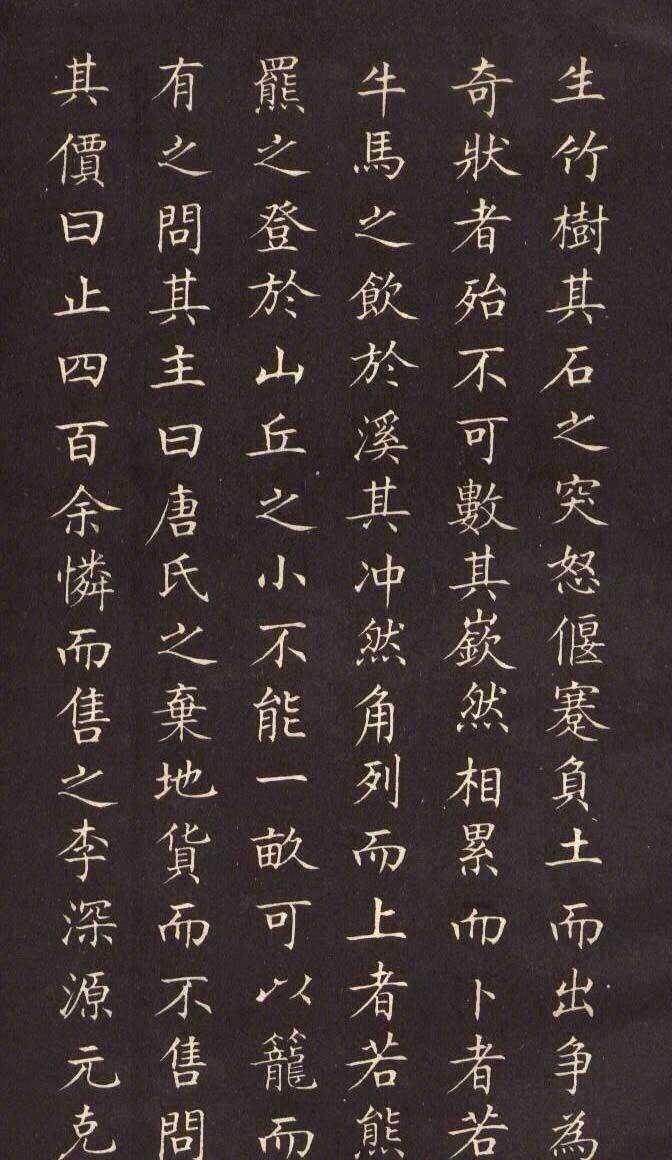 生竹樹其石之突怒偃蹇負土而出争為
奇狀者殆不可數其嶔然相累而卜者若
牛馬之飲於溪其冲然角列而上者若熊
羆之登於山丘之小不能一畝可以籠而
有之問其主曰唐氏之棄地貨而不售問
其價曰止四百余憐而售之李深源元克